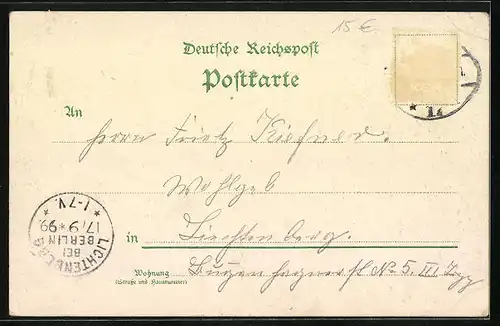 15 €
Deutsche Reichspost
Postkarte
An
Herrn Fritz Kirchner.
Wohlgeb
in Lichtenberg.
Wohnung
(Straße und Hausnummer)
No 5. III
LICHTENBERG
BEI
BERLIN
17/9 99
* 1-7 V. *
* 1a